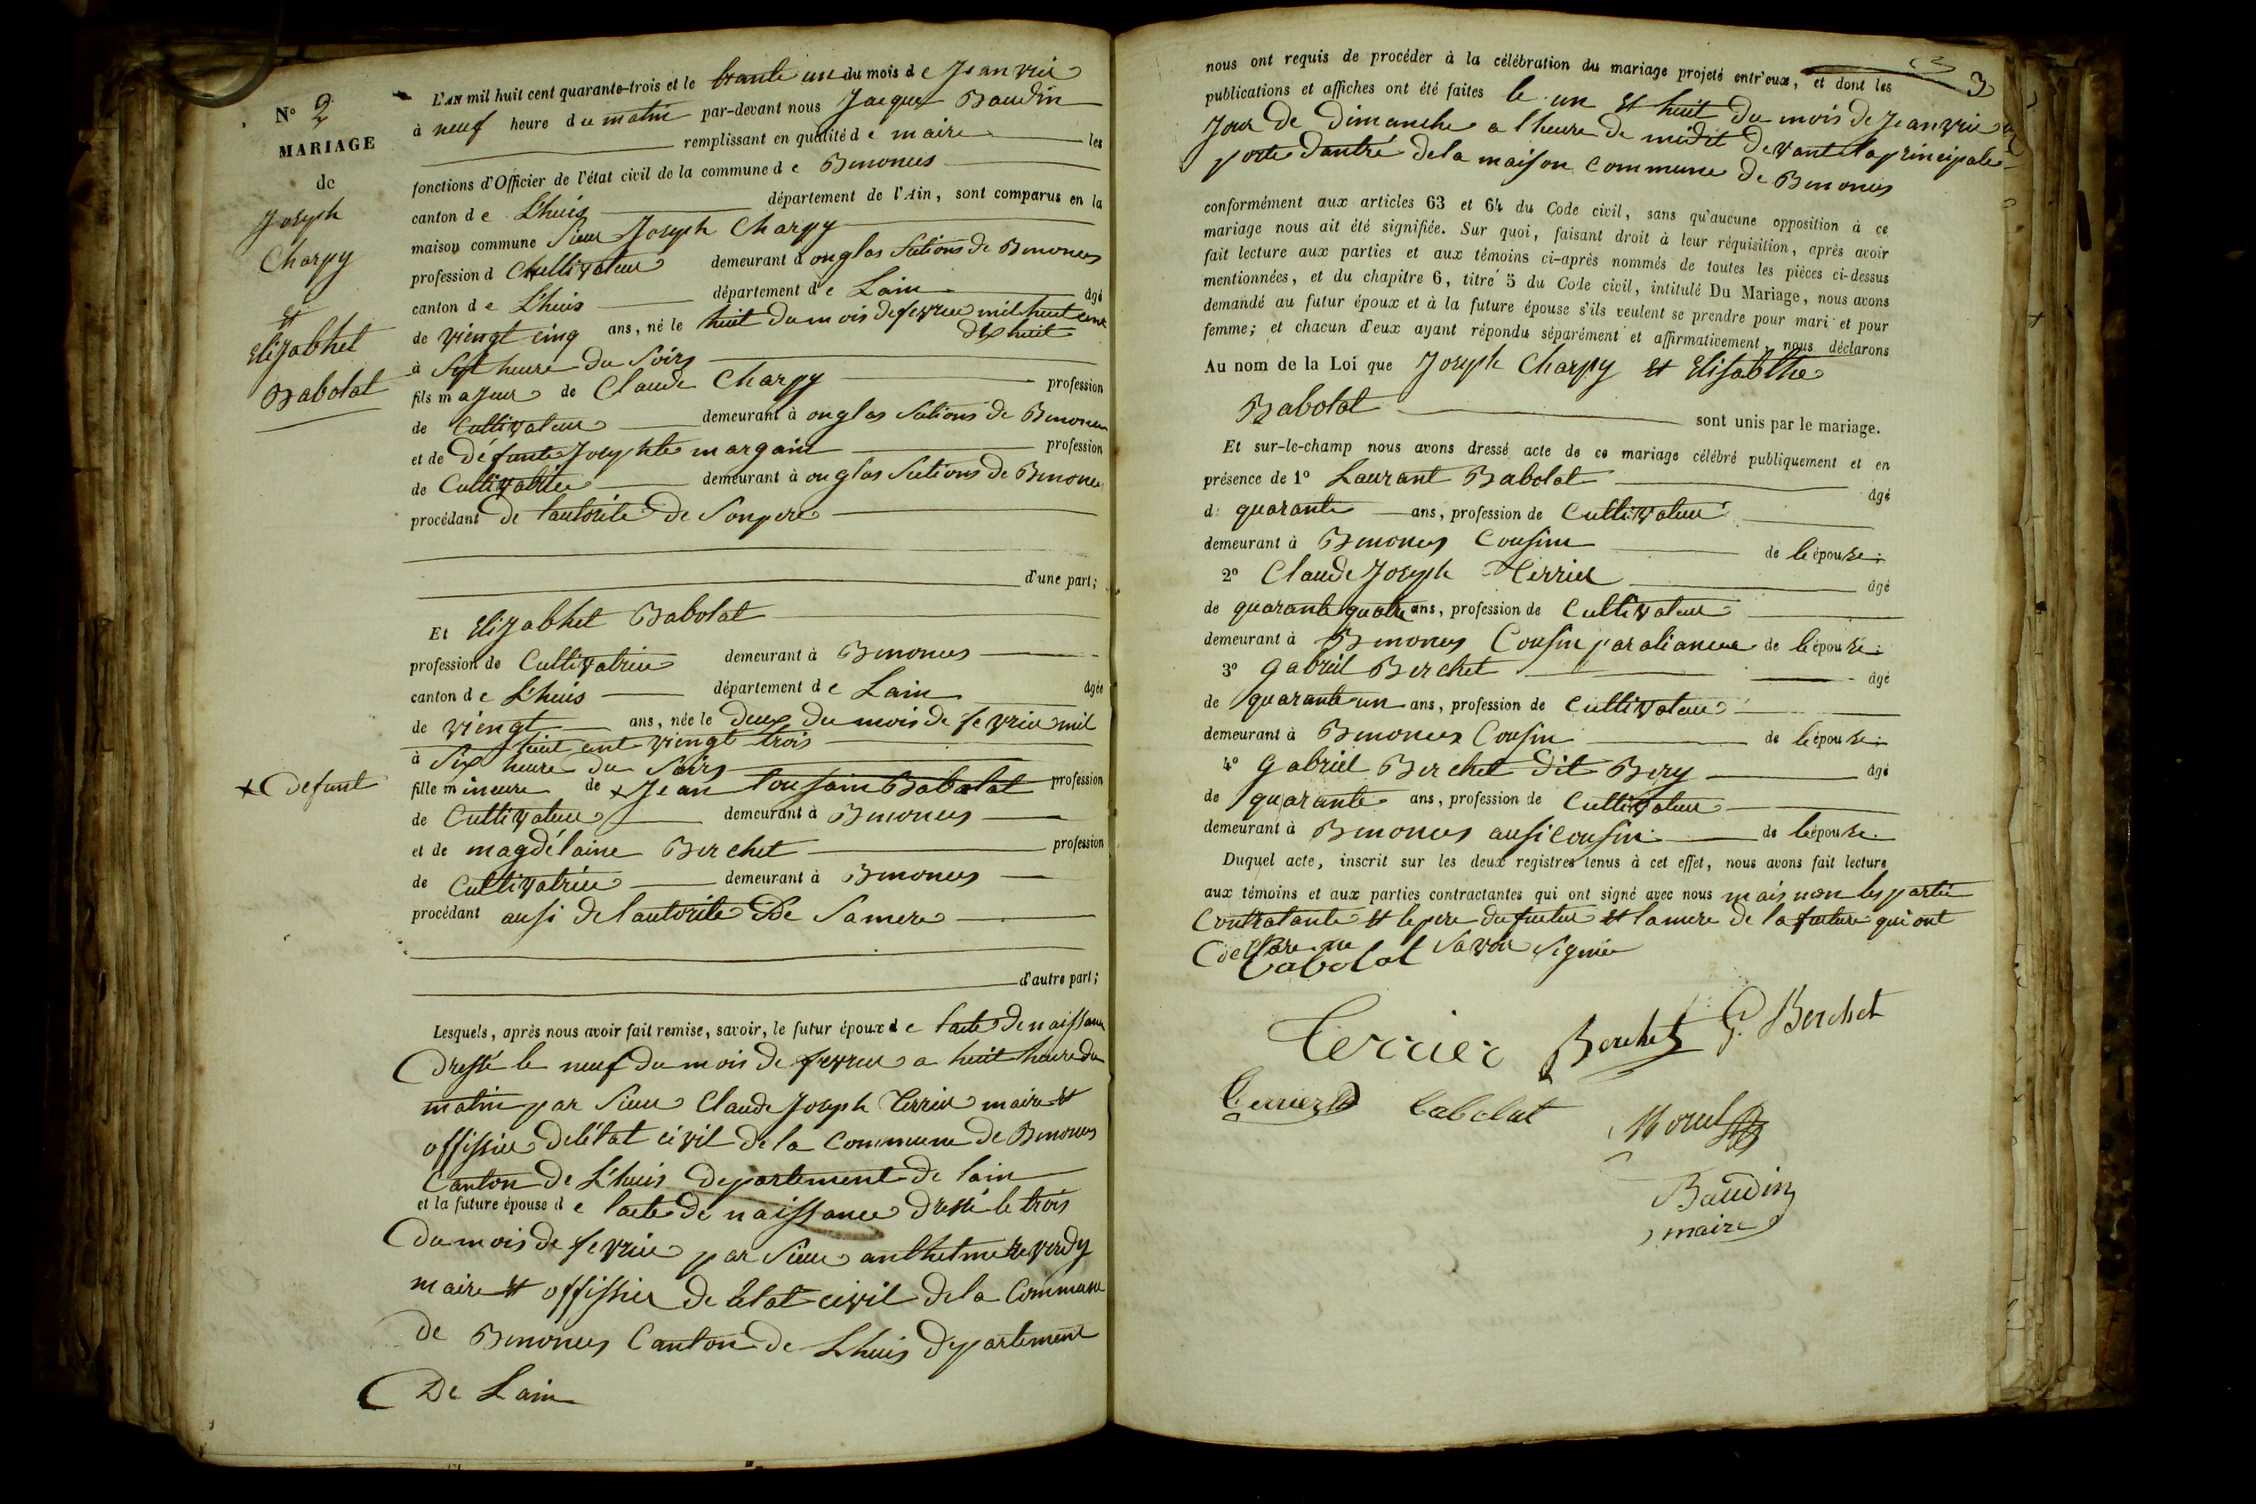 N° 2
MARIAGE
de
Joseph
Charpy
et
Elizabhet
Babolat
L'AN mil huit cent quarante-trois et le trante un du mois de Jeanvier
à neuf heure du matin par-devant nous Jacques Baudin
remplissant en qualité de maire les
fonctions d'Officier de l'état civil de la commune de Benonces
canton de L'huis département de l'Ain, sont comparus en la
maison commune Sieur Joseph Charpy
profession d Cultivateur demeurant à onglas Sections de Benonces
canton de L'huis département de Lain âgé
de viengt cinq ans, né le huit du mois de fevrier mil huit cent
dix huit
à Sept heure du Soirs
fils majeur de Claude Charpy profession
de Cultivateur demeurant à onglas Sections de Benonces
et de défunte Josephte margain profession
de Cultivatrice demeurant à onglas Sections de Benonces
procédant de l'autorité de Son pere
d'une part;
Et Elizabhet Babolat
profession de Cultivatrice demeurant à Benonces
canton de L'huis département de Lain âgée
de viengt ans, née le deux du mois de fevrier mil
huit cent viengt trois
à Six heure du Soirs
x defunt
fille mineure de x Jean tousain Babolat profession
de Cultivateur demeurant à Benonces
et de magdélaine Berchet profession
de Cultivatrice demeurant à Benonces
procédant ausi de l'autorité de Samere
d'autre part;
Lesquels, après nous avoir fait remise, savoir, le futur époux de l'acte de naissance
dressé le neuf du mois de fevrier a huit heure du
matin par Sieur Claude Joseph Terrier maire et
offissier de létat civil de la Commune de Benonces
Canton de L'huis departement de lain
et la future épouse de l'acte de naissance dressé le trois
du mois de fevrier par Sieur anthelme Reverdy
maire et offissier de letat civil de la Commune
de Benonces Canton de Lhuis departement
De Lain
3
nous ont requis de procéder à la célébration du mariage projeté entr'eux, et dont les
publications et affiches ont été faites le un et huit du mois de Jeanvier
Jour de Dimanche a l'heure de midit devant la principale
porte dantré dela maison commune de Benonces
conformément aux articles 63 et 64 du Code civil, sans qu'aucune opposition à ce
mariage nous ait été signifiée. Sur quoi, faisant droit à leur réquisition, après avoir
fait lecture aux parties et aux témoins ci-après nommés de toutes les pièces ci-dessus
mentionnées, et du chapitre 6, titre 5 du Code civil, intitulé Du Mariage, nous avons
demandé au futur époux et à la future épouse s'ils veulent se prendre pour mari et pour
femme; et chacun d'eux ayant répondu séparément et affirmativement, nous déclarons
Au nom de la Loi que Joseph Charpy et Elisabthe
Babolat sont unis par le mariage.
Et sur-le-champ nous avons dressé acte de ce mariage célébré publiquement et en
présence de 1° Laurant Babolat âgé
d quarante ans, profession de Cultivateur
demeurant à Benonces Cousin de l'épouse;
2° Claude Joseph Terrier âgé
de quarante quatre ans, profession de Cultivateur
demeurant à Benonces Cousin par aliance de l'épouse;
3° gabriél Berchet âgé
de quarante un ans, profession de Cultivateur
demeurant à Benonces Cousin de l'épouse;
4° gabriel Berchet dit Bery âgé
de quarante ans, profession de Cultivateur
demeurant à Benonces ausi cousin de l'épouse.
Duquel acte, inscrit sur les deux registres tenus à cet effet, nous avons fait lecture
aux témoins et aux parties contractantes qui ont signé avec nous mais non les partie
Contratante et le pere du futur et la mere de la future qui ont
dellare ne Savoir Signée
Babolat
Terrier Berchet G. Berchet
Terrier Babolat Morel
Baudin
maire